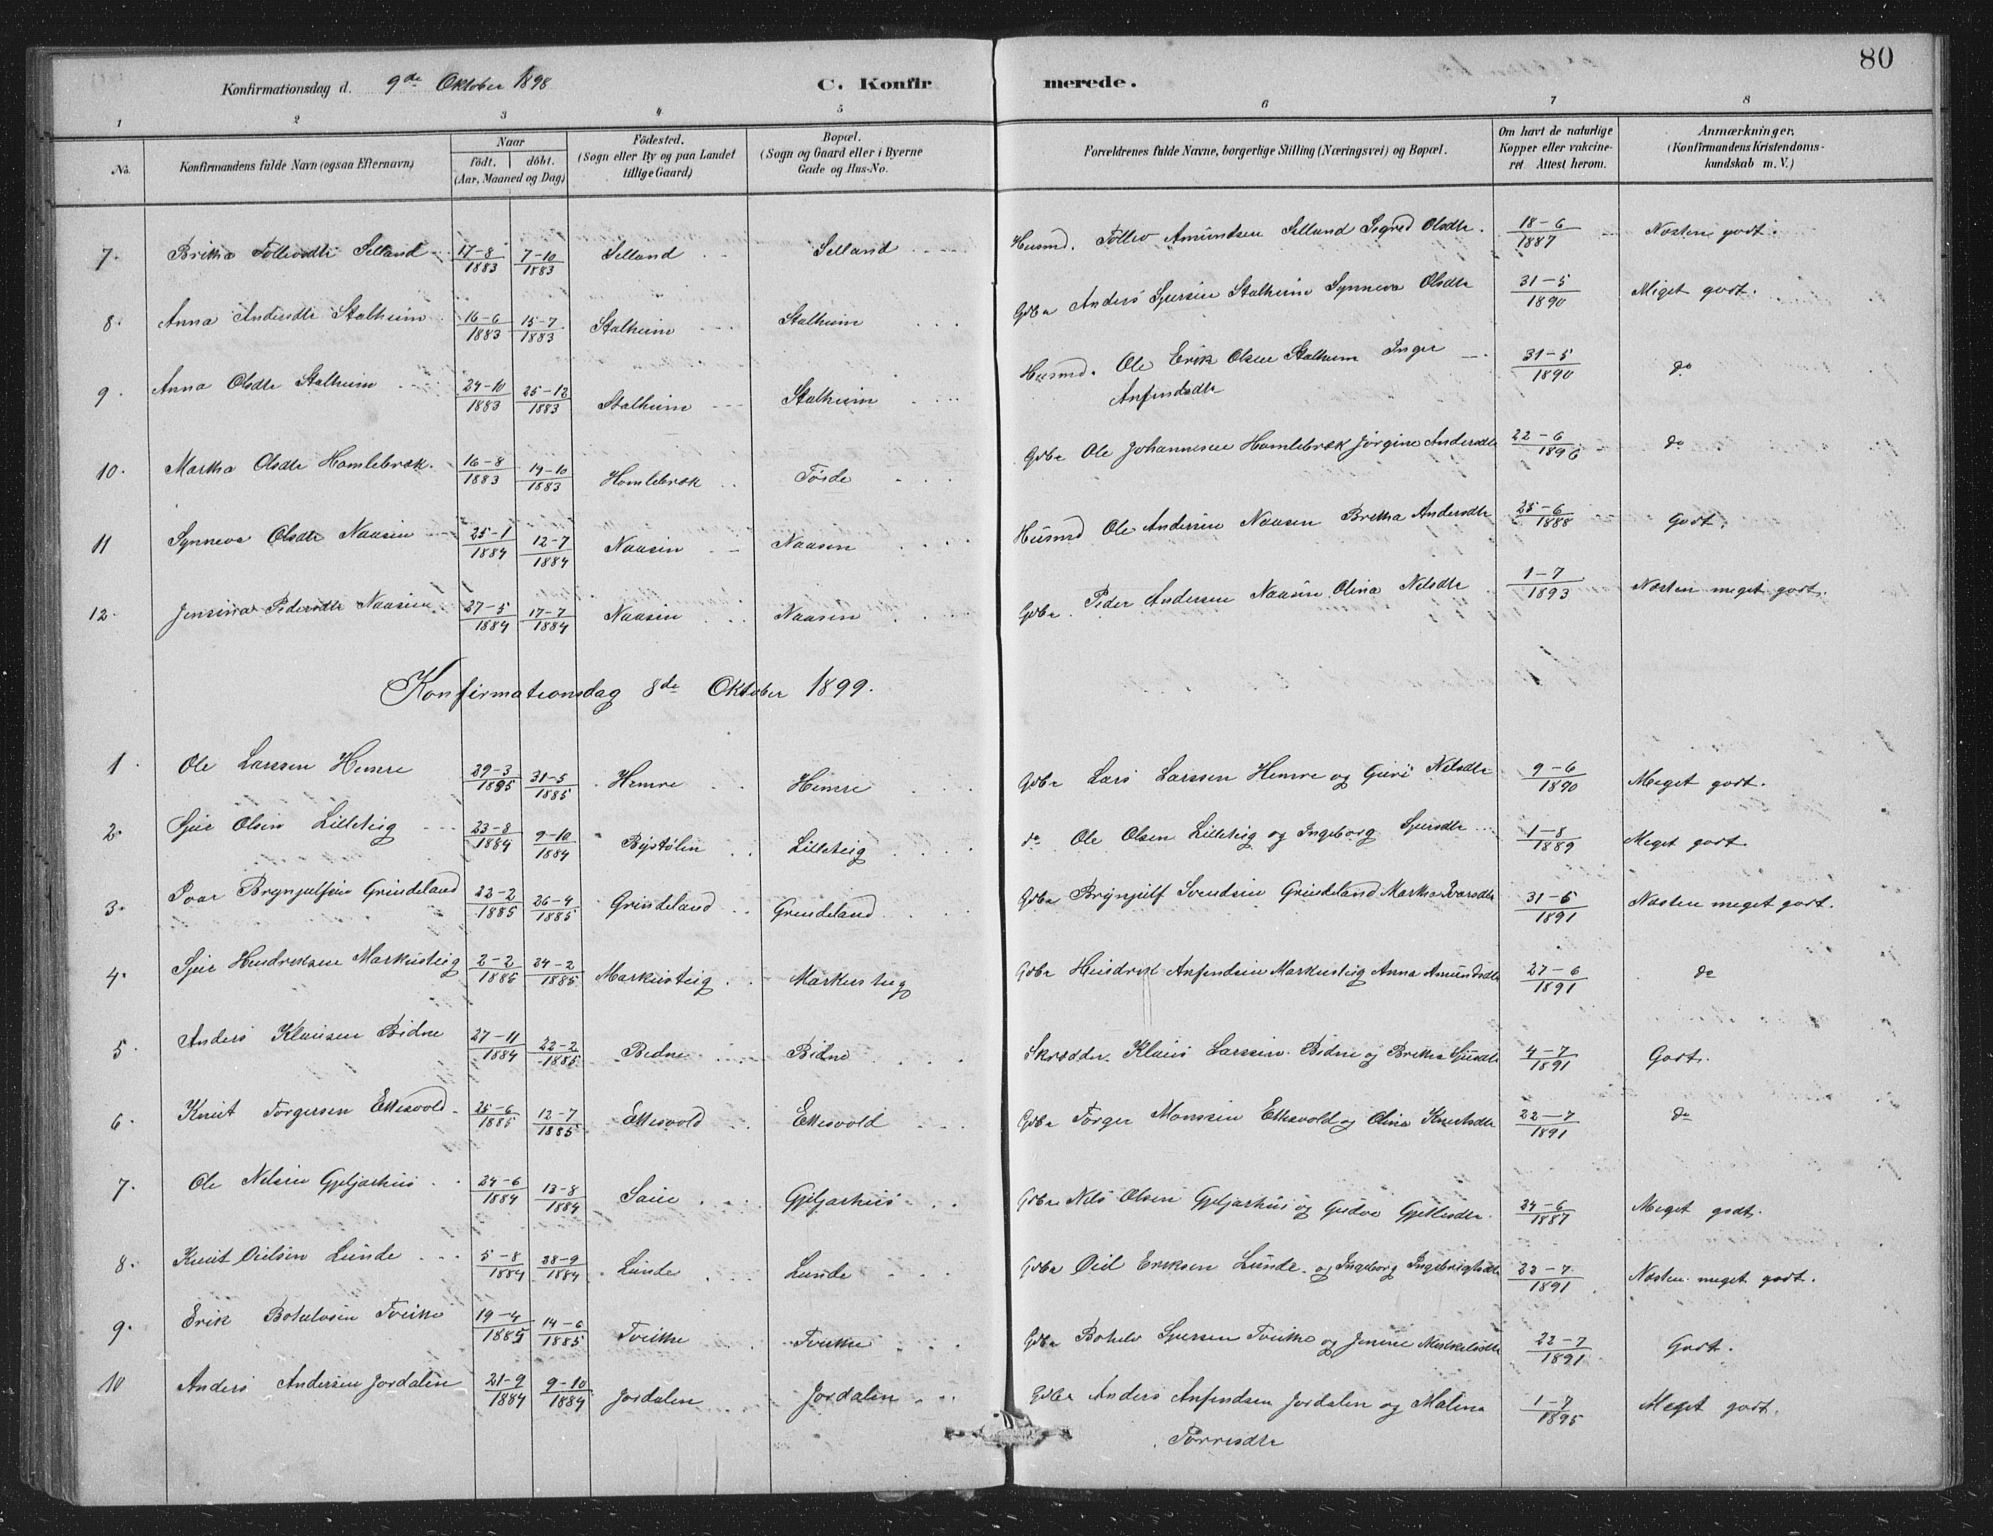 80
Konfirmationsdag d. 9de Oktober 1898 C. Konfirmerede.
1 2 3 4 5 6 7 8
No. Konfirmandens fulde Navn (ogsaa Efternavn) Naar födt. döbt. (Aar, Maaned og Dag) Födested. (Sogn eller By og paa Landet tillige Gaard) Bopæl. (Sogn og Gaard eller i Byerne Gade og Hus-No. Forældrenes fulde Navne, borgerlige Stilling (Næringsvei) og Bopæl. Om havt de naturlige Kopper eller vakcineret Attest herom. Anmærkninger. (Konfirmandens Kristendomskundskab m. V.)
7. Britha Tollevsdtr Selland 17-8 1883 7-10 1883 Selland Selland Husmd. Tollev Amundsen Selland Sigrid Olsdtr. 18-6 1887 Næsten godt.
8. Anna Andersdtr Stalheim 16-6 1883 15-7 1883 Stalheim Stalheim Gdbr Anders Sjursen Stalheim Synneva Olsdtr 31-5 1890 Meget godt.
9. Anna Olsdtr Stalheim 24-10 1883 25-12 1883 Stalheim Stalheim Husmd. Ole Erik Olsen Stalheim Inger
Anfindsdtr 31-5 1890 do
10. Martha Olsdtr Homlebræk. 16-8 1883 14-10 1883 Homlebræk Tøsde Gdbr Ole Johannesen Homlebræk Jørgine Andersdtr 22-6 1896 do
11 Synneva Olsdtr Naasen 25-1 1884 12-7 1884 Naasen Naasen Husmd Ole Andersen Naasen Britha Andersdtr 25-6 1888 Godt.
12. Jensina Pedersdtr Naasen 27-5 1884 17-7 1884 Naasen Naasen Gdbr. Peder Andersen Naasen Olina Nilsdtr 1-7 1893 Næsten meget godt.
Konfirmationsdag 8de Oktober 1899.
1. Ole Larssen Hemre 29-3 1885 31-5 1885 Hemre Hemre Gdbr Lars Larssen Hemre og Guri Nilsdtr 9-6 1890 Meget godt.
2. Sjur Olsen Lilleteig 23-8 1884 9-10 1884 Byrstølen Lilleteig do Ole Olsen Lilleteig og Ingeborg Sjursdtr 1-8 1889 Meget godt.
3. Ivar Brynjulfsen Grindeland 22-2 1885 26-4 1885 Grindeland Grindeland Gdbr Brynjulf Svendsen Grindeland Martha Ivarsdtr 31-5 1891 Næsten meget godt.
4. Sjur Hendriksen Markusteig 2-2 1885 24-2 1885 Markusteig Markusteig Gdbr Hendrik Anfindsen Markusteig Anna Amundsdtr 27-6 1891 do
5. Anders Klausen Bidne 27-11 1884 22-2 1885 Bidne Bidne Skrædder. Klaus Larssen Bidne og Britha Sjursdtr 4-7 1891 Godt.
6. Knut Torgersen Ettesvold 25-6 1885 12-7 1885 Ettesvold Ettesvold Gdbr Torger Monssen Ettesvold og Olina Knutsdtr 22-7 1891 do
7. Ole Nilsen Gjeljarhus 24-6 1884 13-8 1884 Saue Gjeljarhus Gdbr Nils Olsen Gjeljarhus og Gudve Gjetlesdtr. 24-6 1887 Meget godt.
8. Knut Odilsen Lunde 5-8 1884 28-9 1884 Lunde Lunde Gdbr Odil Eriksen Lunde og Ingeborg Ingebrigtsdtr 22-7. 1891 Næsten meget godt.
9. Erik Botolvsen Tveite 19-4 1885 14-6 1885 Tveite Tveite Gdbr Botolv Sjursen Tveite og Jenine Mikkelsdtr 22-7 1891 Godt.
10 Anders Andersen Jordalen 21-9 1884 9-10 1884 Jordalen Jordalen Gdbr Anders Anfindsen Jordalen og Malena
Torresdtr 1-7 1895 Meget godt.